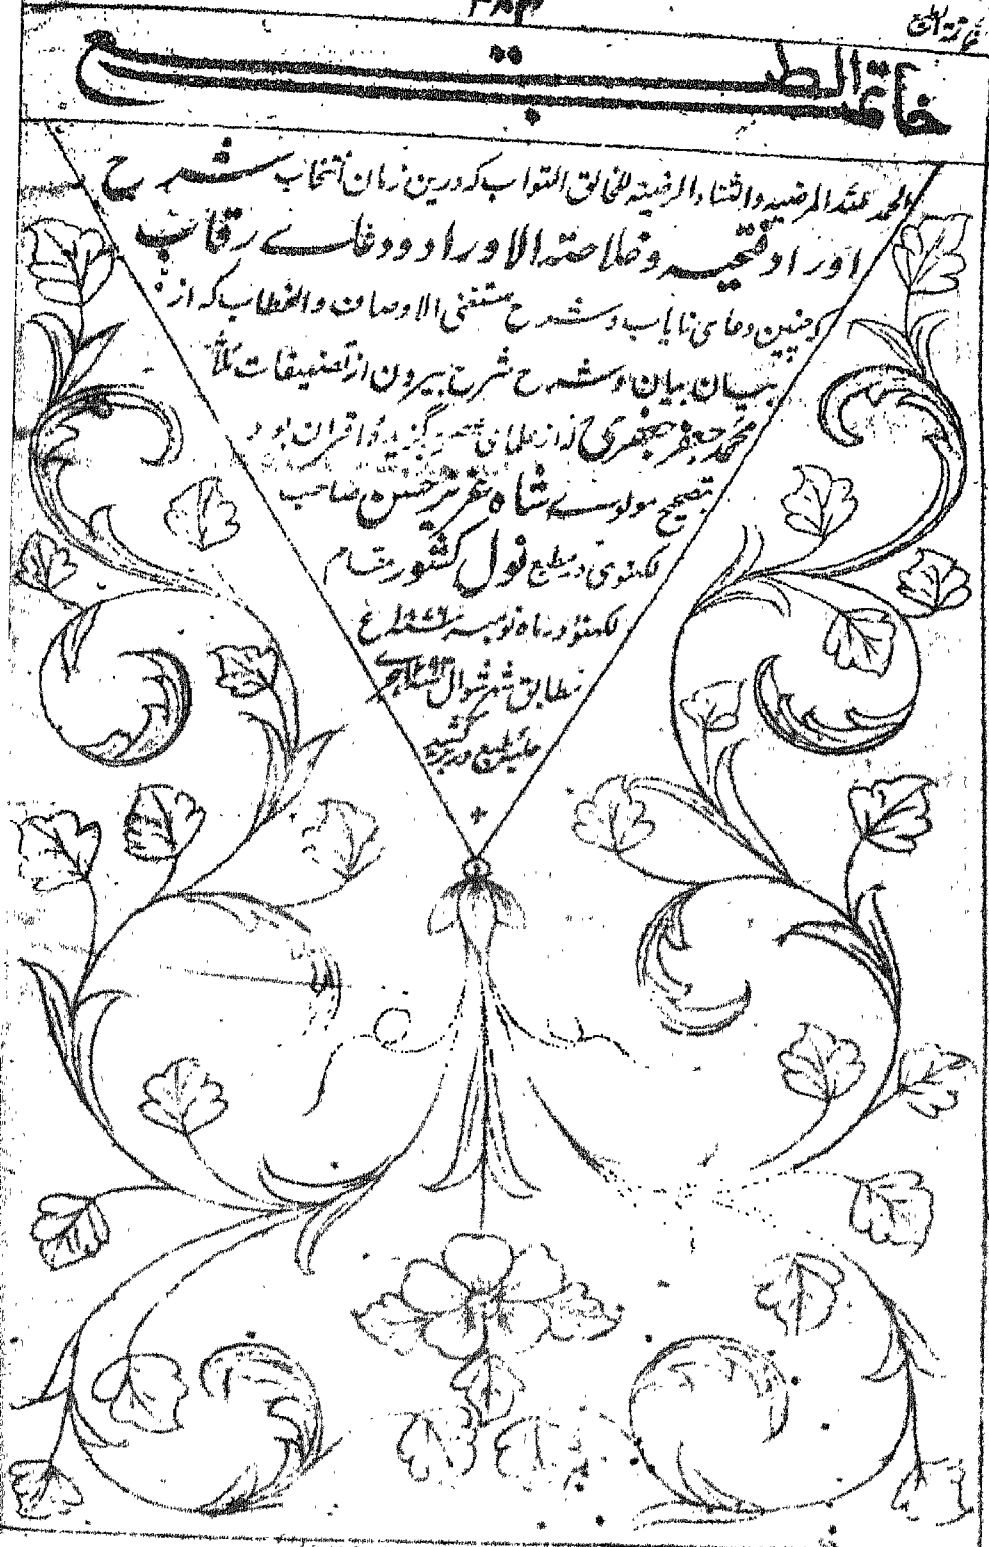 خاتمة الطبع
خاتمة الطبع
الحمد لله المرضیه والثناء المرضیته للخالق التواب که درین زمان انتخاب شرح
اوراد فتحیه و خلاصته الاوراد و دعاے رقاب
که چنین دعای نایاب و شرح مستغنی الاوصاف والخطاب که از
بیان بیان و شرح شرح بیرون از تصنیفات
محمد جعفر جعفری از علمای گزیده اقران بود
بتصحیح مولوے شاه عزیز حسن صاحب
لکهنوی در مطبع نول کشور مقام
لکهنؤ در ماه نومبر ۱۸۸۶ع
مطابق شوال هجری
حلیۂ طبع دربر کشید